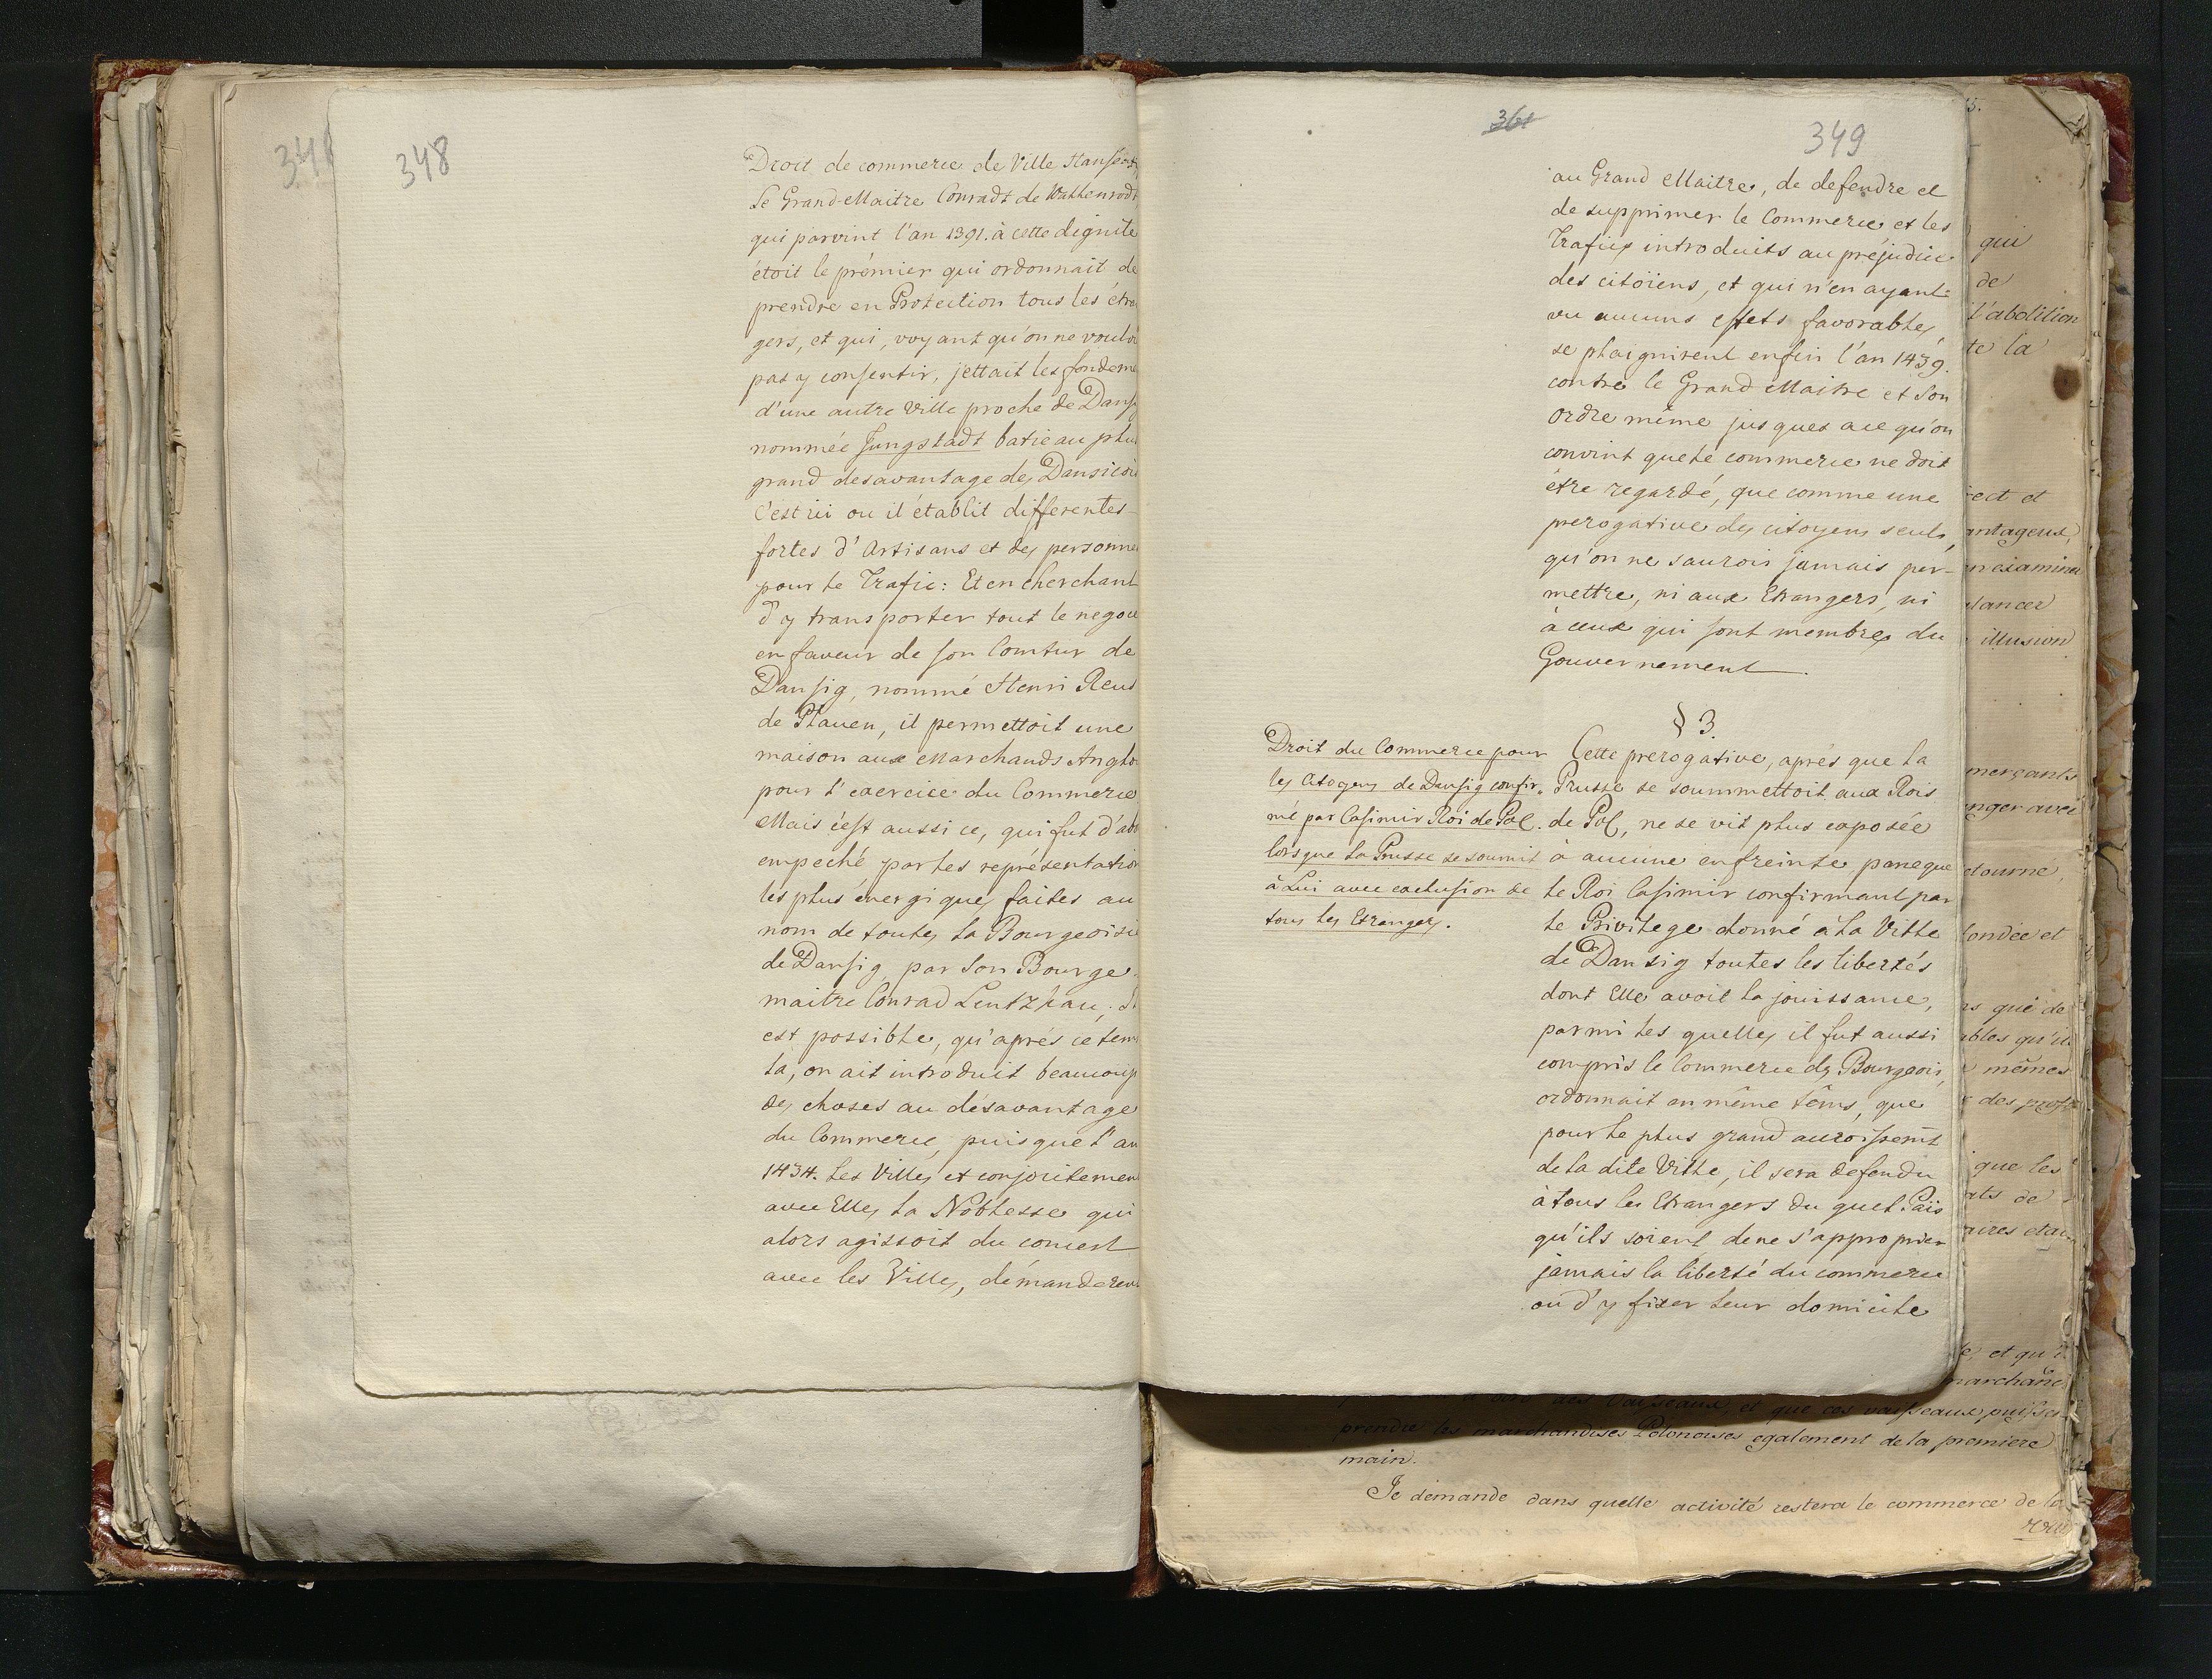 348
Droit de commerce de Ville Hanseat
Le Grand-Maitre Conradt de Wallenrodt
qui parvint l'an 1391. à cette dignité
étoit le prémier qui ordonnait de
prendre en Protection tous les étra
gers, et qui, voyant qu'on ne vouloi
pas y consentir, jettait les fondeme
d'une autre Ville proche de Dansi
nommée Jungstadt batie au plus
grand desavantage des Dansicois
C'est ici ou il établit differentes
sortes d'Artisans et des personnes
pour le Trafic: Et en cherchant
d'y transporter tout le negoce
en faveur de son Comtur de
Dansig, nommé Henri Reus
de Plauen, il permettoit une
maison aux Marchands Anglo
pour l'exercice du Commerce
Mais c'est aussi ce, qui fut d'abo
empeché, par les représentation
les plus énergiques faites au
nom de toutes la Bourgeoisie
de Dansig, par son Bourge-
maitre Conrad Lentzkau;
est possible, qu'aprés ce tems
là, on ait introduit beaucoup
des choses au désavantage
du Commerce, puisque l'an
1434. les Villes et conjoitement
avec Elles la Noblesse qui
alors agissoit du concert
avec les Villes, démanderent
361
349
au Grand Maitre, de defendre et
de supprimer le Commerce et les
Trafics introduits au préjudice
des citoïens, et qui n'en ayant
vu aucuns effets favorables,
se plaignirent enfin l'an 1439.
contre le Grand-Maitre et Son
ordre même jusques a ce qu'on
convint que le commerce ne doit
être regardé, que comme une
prerogative des citoyens seuls,
qu'on ne sauroit jamais per-
mettre, ni aux Etrangers, ni
à ceux qui sont membres du
Gouvernement.
§ 3.
Droit du Commerce pour
les Citoyens de Dansig confir-
mé par Casimir Roi de Pol.
lorsque la Prusse se soumit
à Lui avec exclusion de
tous les Etrangers.
Cette prerogative, aprés que la
Prusse se soummettoit aux Rois
de Pol, ne se vit plus exposée
à aucune enfreinte parceque
le Roi Casimir confirmant par
le Privilege donné à la Ville
de Dansig toutes les libertés
dont Elle avoit la jouissance,
parmi les quelles il fut aussi
compris le Commerce des Bourgeois,
ordonnait en même têms, que
pour le plus grand accroissemt
de la dite Ville, il sera defendu
à tous les Etrangers du quel Païs
qu'ils soient de ne s'approprier
jamais la liberté du commerce
ou d'y fixer leur domicile
qui
de
l'abolition
te la
rect et
antageux,
en examiner
lancer
illusion
merçants
nger avec
etourne,
ondée et
rs que de
ables qu'il
mêmes
des profi
que les
ats de
aires et au
, et qu'i
marchand
des Vaisseaux, et que ces vaisseaux puisse
prendre les marchandises Polonoises egalement de la premiere
main.
Je demande dans quelle activité restera le commerce de la